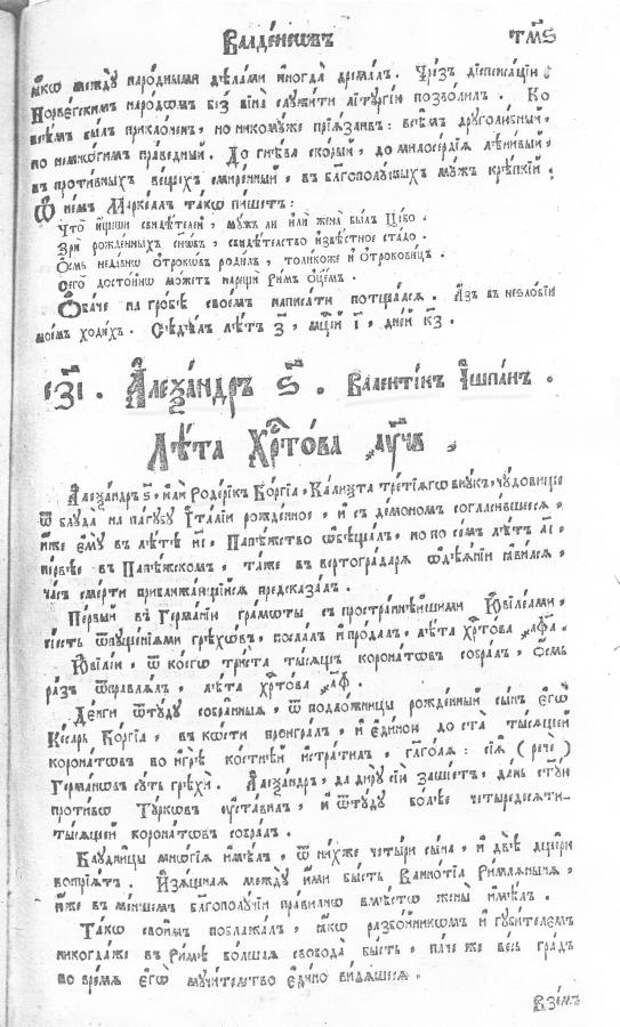 Валденсовъ тм҃ѕ
ꙗ҆кѡ междꙋ народными дѣлами иногда дремалъ. Чрезъ діспенсаціи
Норвегскимъ народѡмъ без̾ віна слꙋжити літꙋргіи позволилъ. Ко
всѣмъ былъ приклоненъ, но никомꙋже прїѧзливъ: всѣмъ дрꙋголюбный,
но немнѡгимъ праведный. До гнѣва скорый, до милосердїѧ лѣнивый,
въ противныхъ вещехъ смиренный, въ благополꙋчныхъ мꙋжъ крѣпкій
Ѿ нем Маркеллъ такѡ пишетъ:
Что ищеши свидѣтелей, мꙋжъ ли или жена былъ Цѵбо.
Зри рожденныхъ сынѡвъ, свидѣтелство извѣстное стадо.
Осмь недавно отрокѡвъ родилъ, толикоже и отроковицъ.
Сего достойнѡ можетъ нарещи Римъ оцемъ.
Обаче на гробѣ своемъ написати потщалсѧ. Азъ въ незлобїи
моемъ ходихъ. Сѣдѣлъ лѣтъ з҃, мцей і҃, дней к҃з.
с҃зі. Алеѯандръ ѕ҃. Валентінъ Ішпанъ.
Лѣта Хрⷭ҇това ҂а҃уч҃в,
Алеѯандръ ѕ҃, или Родерікъ Боргїа, Каліѯта третїѧгѡ внꙋкъ, чꙋдовище
ѿ блꙋда на пагꙋбꙋ Італїи рожденное, и съ демономъ согласившеесѧ,
иже емꙋ въ лѣтѣ н҃і. Папѣжство ѡбѣщалъ, но по семъ лѣтъ а҃і.
первѣе въ Папѣжскомъ, таже въ вертоградарѧ ѡдѣѧнїи ꙗвилсѧ,
часъ смерти приближающійсѧ предсказалъ.
Первый въ Германїи грамоты съ пространнѣйшими Ювілеами,
єсть ѿпꙋщенїѧми грѣхѡвъ, послалъ и продалъ, лѣта Хрⷭ҇това ҂а҃ф҃а.
Ювілеи, ѿ коегѡ триста тысѧщъ коронатѡвъ собралъ, осмь
разъ ѿправлѧлъ, лѣта Хрⷭ҇това ҂а҃ф.
Денги ѿтꙋдꙋ собранныѧ, ѿ подложницы рожденный сынъ єгѡ
Кесарь Боргїа, въ кости проигралъ, и єдиною до ста тысѧщей
коронатѡвъ во игрѣ костнѣй истратилъ, глаголѧ: сїѧ (рече)
Германѡвъ сꙋть грѣхи. Алеѯандръ, да дирꙋ сїю зашіетъ, дань
противо Тꙋркѡвъ ꙋставилъ, и ѿтꙋдꙋ болѣе четыредесѧти-
тысѧщей коронатѡвъ собралъ.
Блꙋдницы мнѡгїѧ имѣлъ, ѿ нихже четыри сына, и двѣ дщери
воспрїѧтъ. Изѧщнаѧ междꙋ ими бысть Ваннотїа Римлѧныни,
юже въ меншемъ благополꙋчїи правилнѡ вмѣстѡ жены имѣлъ.
Такѡ своимъ поблажалъ, ꙗкѡ разбойникѡмъ и гꙋбителемъ
никогдаже въ Римѣ болшаѧ свобода бысть, паче же весь градъ
во времѧ єгѡ мꙋчителство єдино видѧшесѧ.